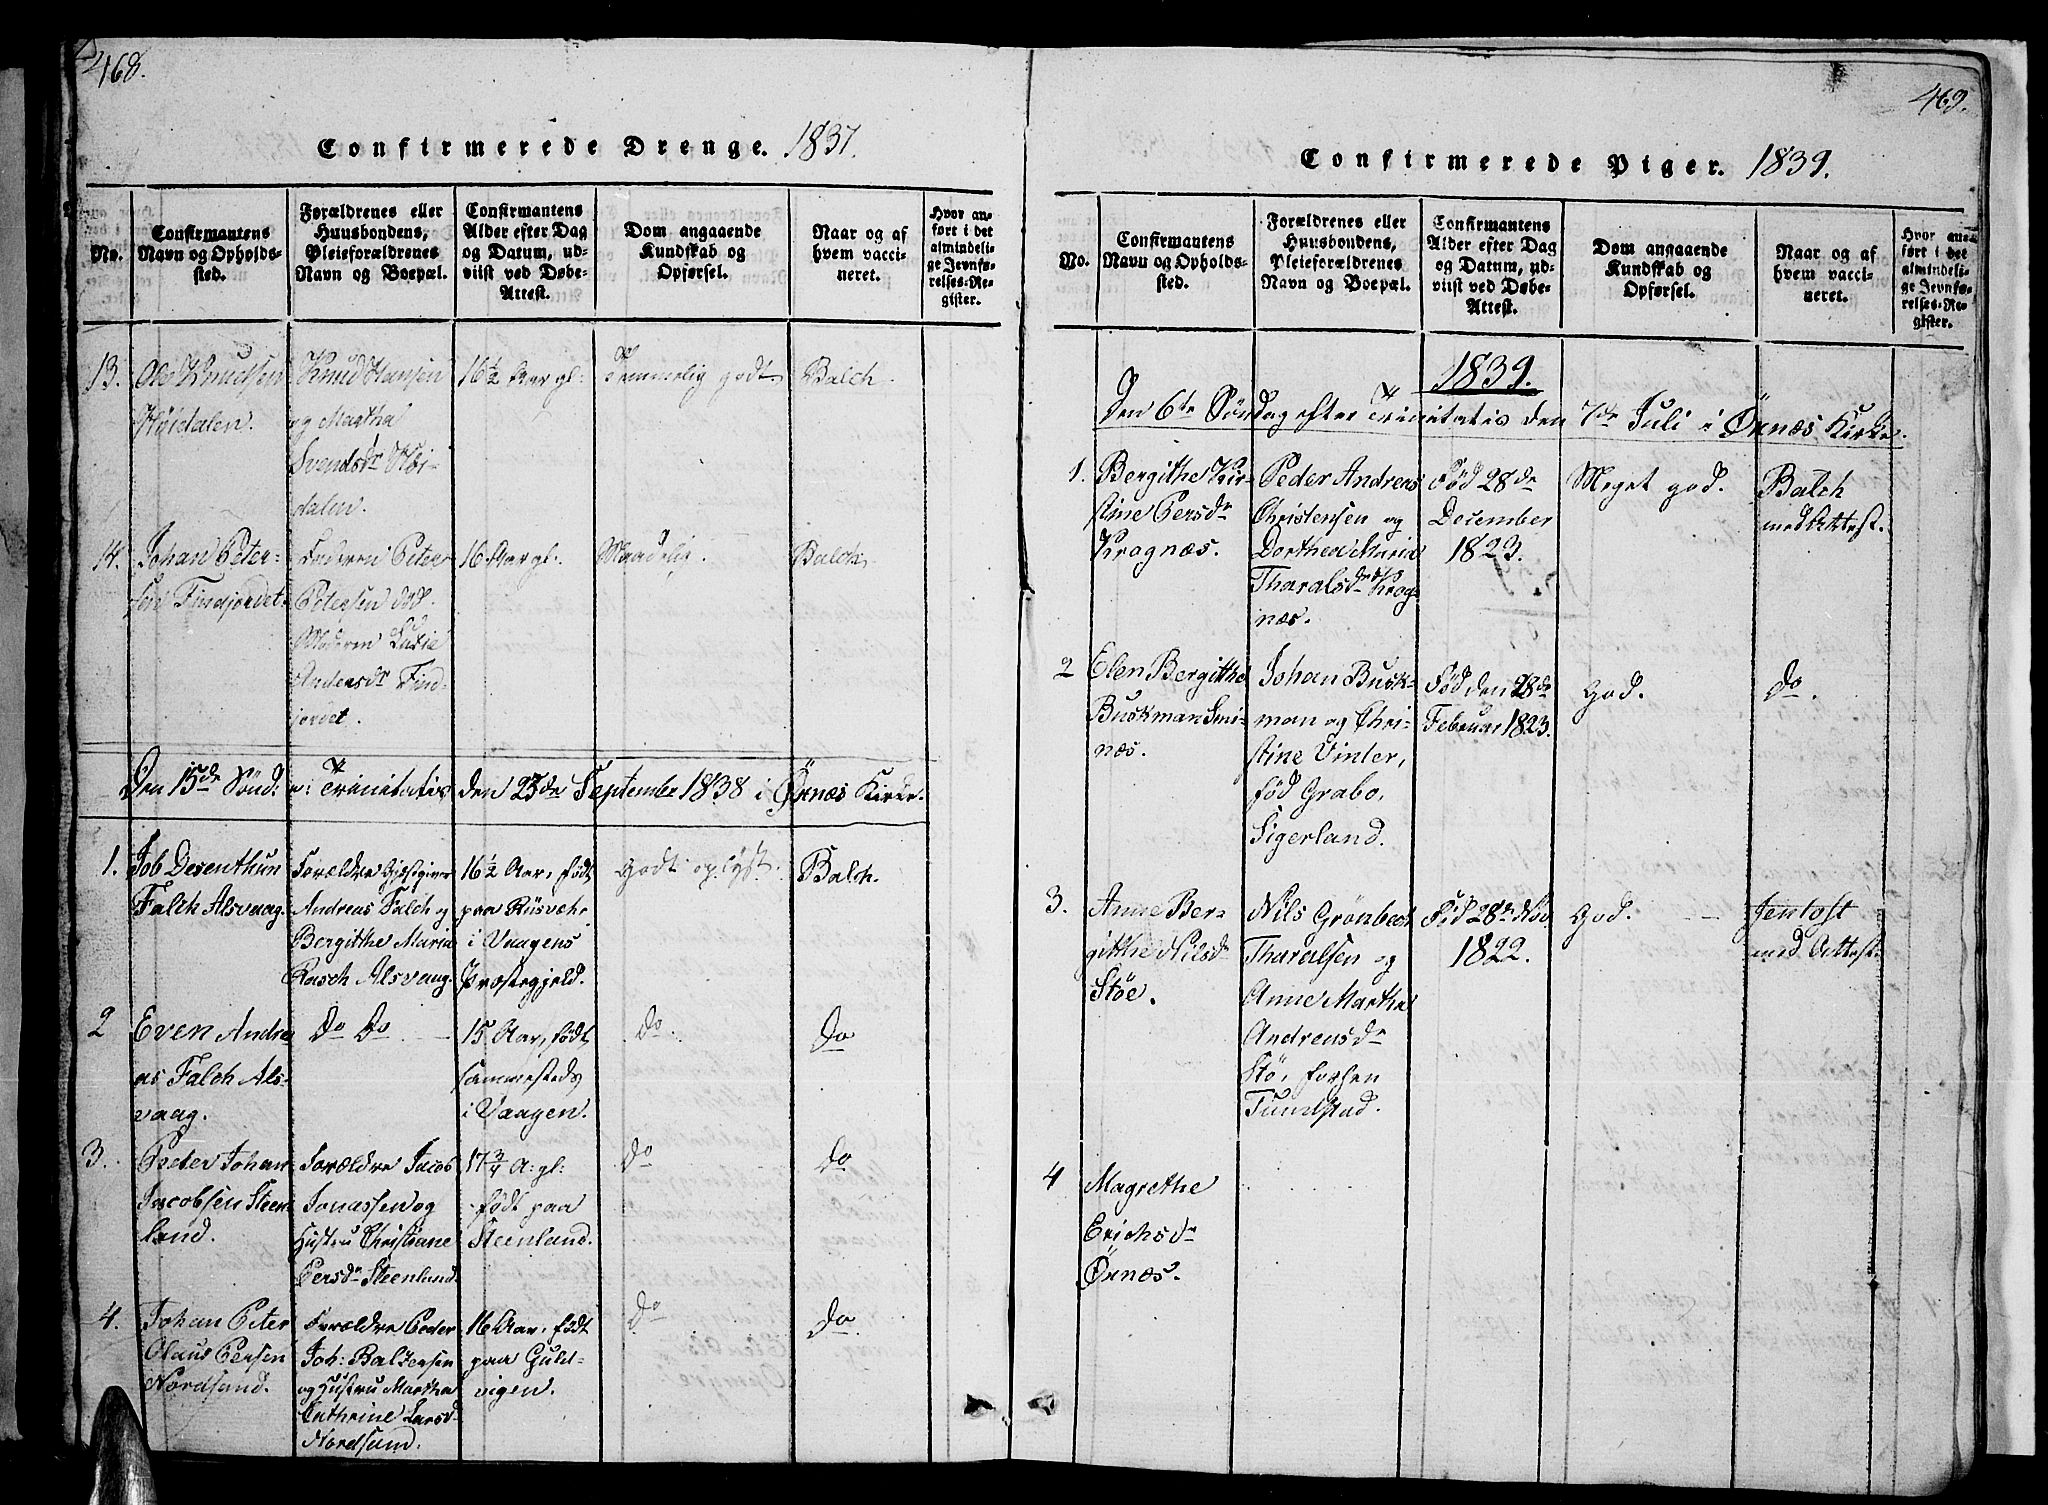 468.
Confirmerede Drenge. 1837.
No.
Confirmantens
Navn og Opholds-
sted.
Forældrenes eller
Huusbondens,
Pleieforældrenes
Navn og Boepæl.
Confirmantens
Alder efter Dag
og Datum, ud-
viist ved Døbe-
Attest.
Dom angaaende
Kundskab og
Opførsel.
Naar og af
hvem vacci-
neret.
Hvor an-
ført i det
almindeli-
ge Jevnfø-
relses-Re-
gister.
13.
Ole Knudsen
Høidalen.
Knud Hansen
og Martha
Svendsdr Høi-
dalen.
16½ Aar gl:
Temmelig godt
Balch.
14.
Johan Peter-
sen Findjordet.
Faderen Peter
Petersen død.
Moderen
Andersdr Find-
jordet.
16 Aar gl.
Maadelig.
Balch.
Den 15de Sønd: e: Trinitatis den 23de September 1838 i Öxnæs Kirke.
1.
Job Desenthun
Falch Alsvaag.
Forældre Gjæstgiver
Andreas Falch og
Bergitthe Maria
Rasch Alsvaag.
16½ Aar, født
paa Risvær
i Vaagens
Præstegjeld.
Godt oplyst.
Balch.
2
Even Andre-
as Falch Als-
vaag.
Do Do
15 Aar, født
sammesteds
i Vaagen.
Do.
Do
3.
Peder Johan
Jacobsen Steen-
land.
Forældre Jacob
Jonassen og
Hustru Christiane
Persdr Steenland.
17¾ A: gl:
født paa
Steenland.
Do
Do
4.
Johan Peter
Olaus Persen
Nordsand.
Forældre Peder
Joh: Baltzersen
og Hustru Martha
Cathrine Larsd.
Nordsund.
16 Aar, født
paa Guld-
vigen.
Do
Do
469.
Confirmerede Piger. 1839.
No.
Confirmantens
Navn og Opholds-
sted.
Forældrenes eller
Huusbondens,
Pleieforældrenes
Navn og Boepæl.
Confirmantens
Alder efter Dag
og Datum, ud-
viist ved Døbe-
Attest.
Dom angaaende
Kundskab og
Opførsel.
Naar og af
hvem vacci-
neret.
Hvor an-
ført i det
almindeli-
ge Jevnfø-
relses-Re-
gister.
1839.
Den 6te Søndag efter Trinitatis den 7de Juli i Öxnæs Kirke.
1.
Bergithe Kir-
stine Persdr
Kragnæs.
Peder Andreas
Christensen og
Dorthea Maria
Tharalsdr Krag-
næs.
Fød 28de
December
1823.
Meget god.
Balch
med Attest.
2
Elen Bergitthe
Buskman Smi-
næs.
Johan Busk-
man og Chri-
stine Vinter,
fød Grabo,
Sigerland.
Fød den 28de
Februar 1823.
God.
Do.
3.
Anne Ber-
gitthe Nilsdr
Støe.
Nils Grönbech
Tharalsen og
Anne Martha
Andreasdr
Stö, forhen
Tunstad.
Fød 28de Nov
1822.
God.
Jentoft
med Attest.
4
Magrethe
Erichsdr
Öxnæs.